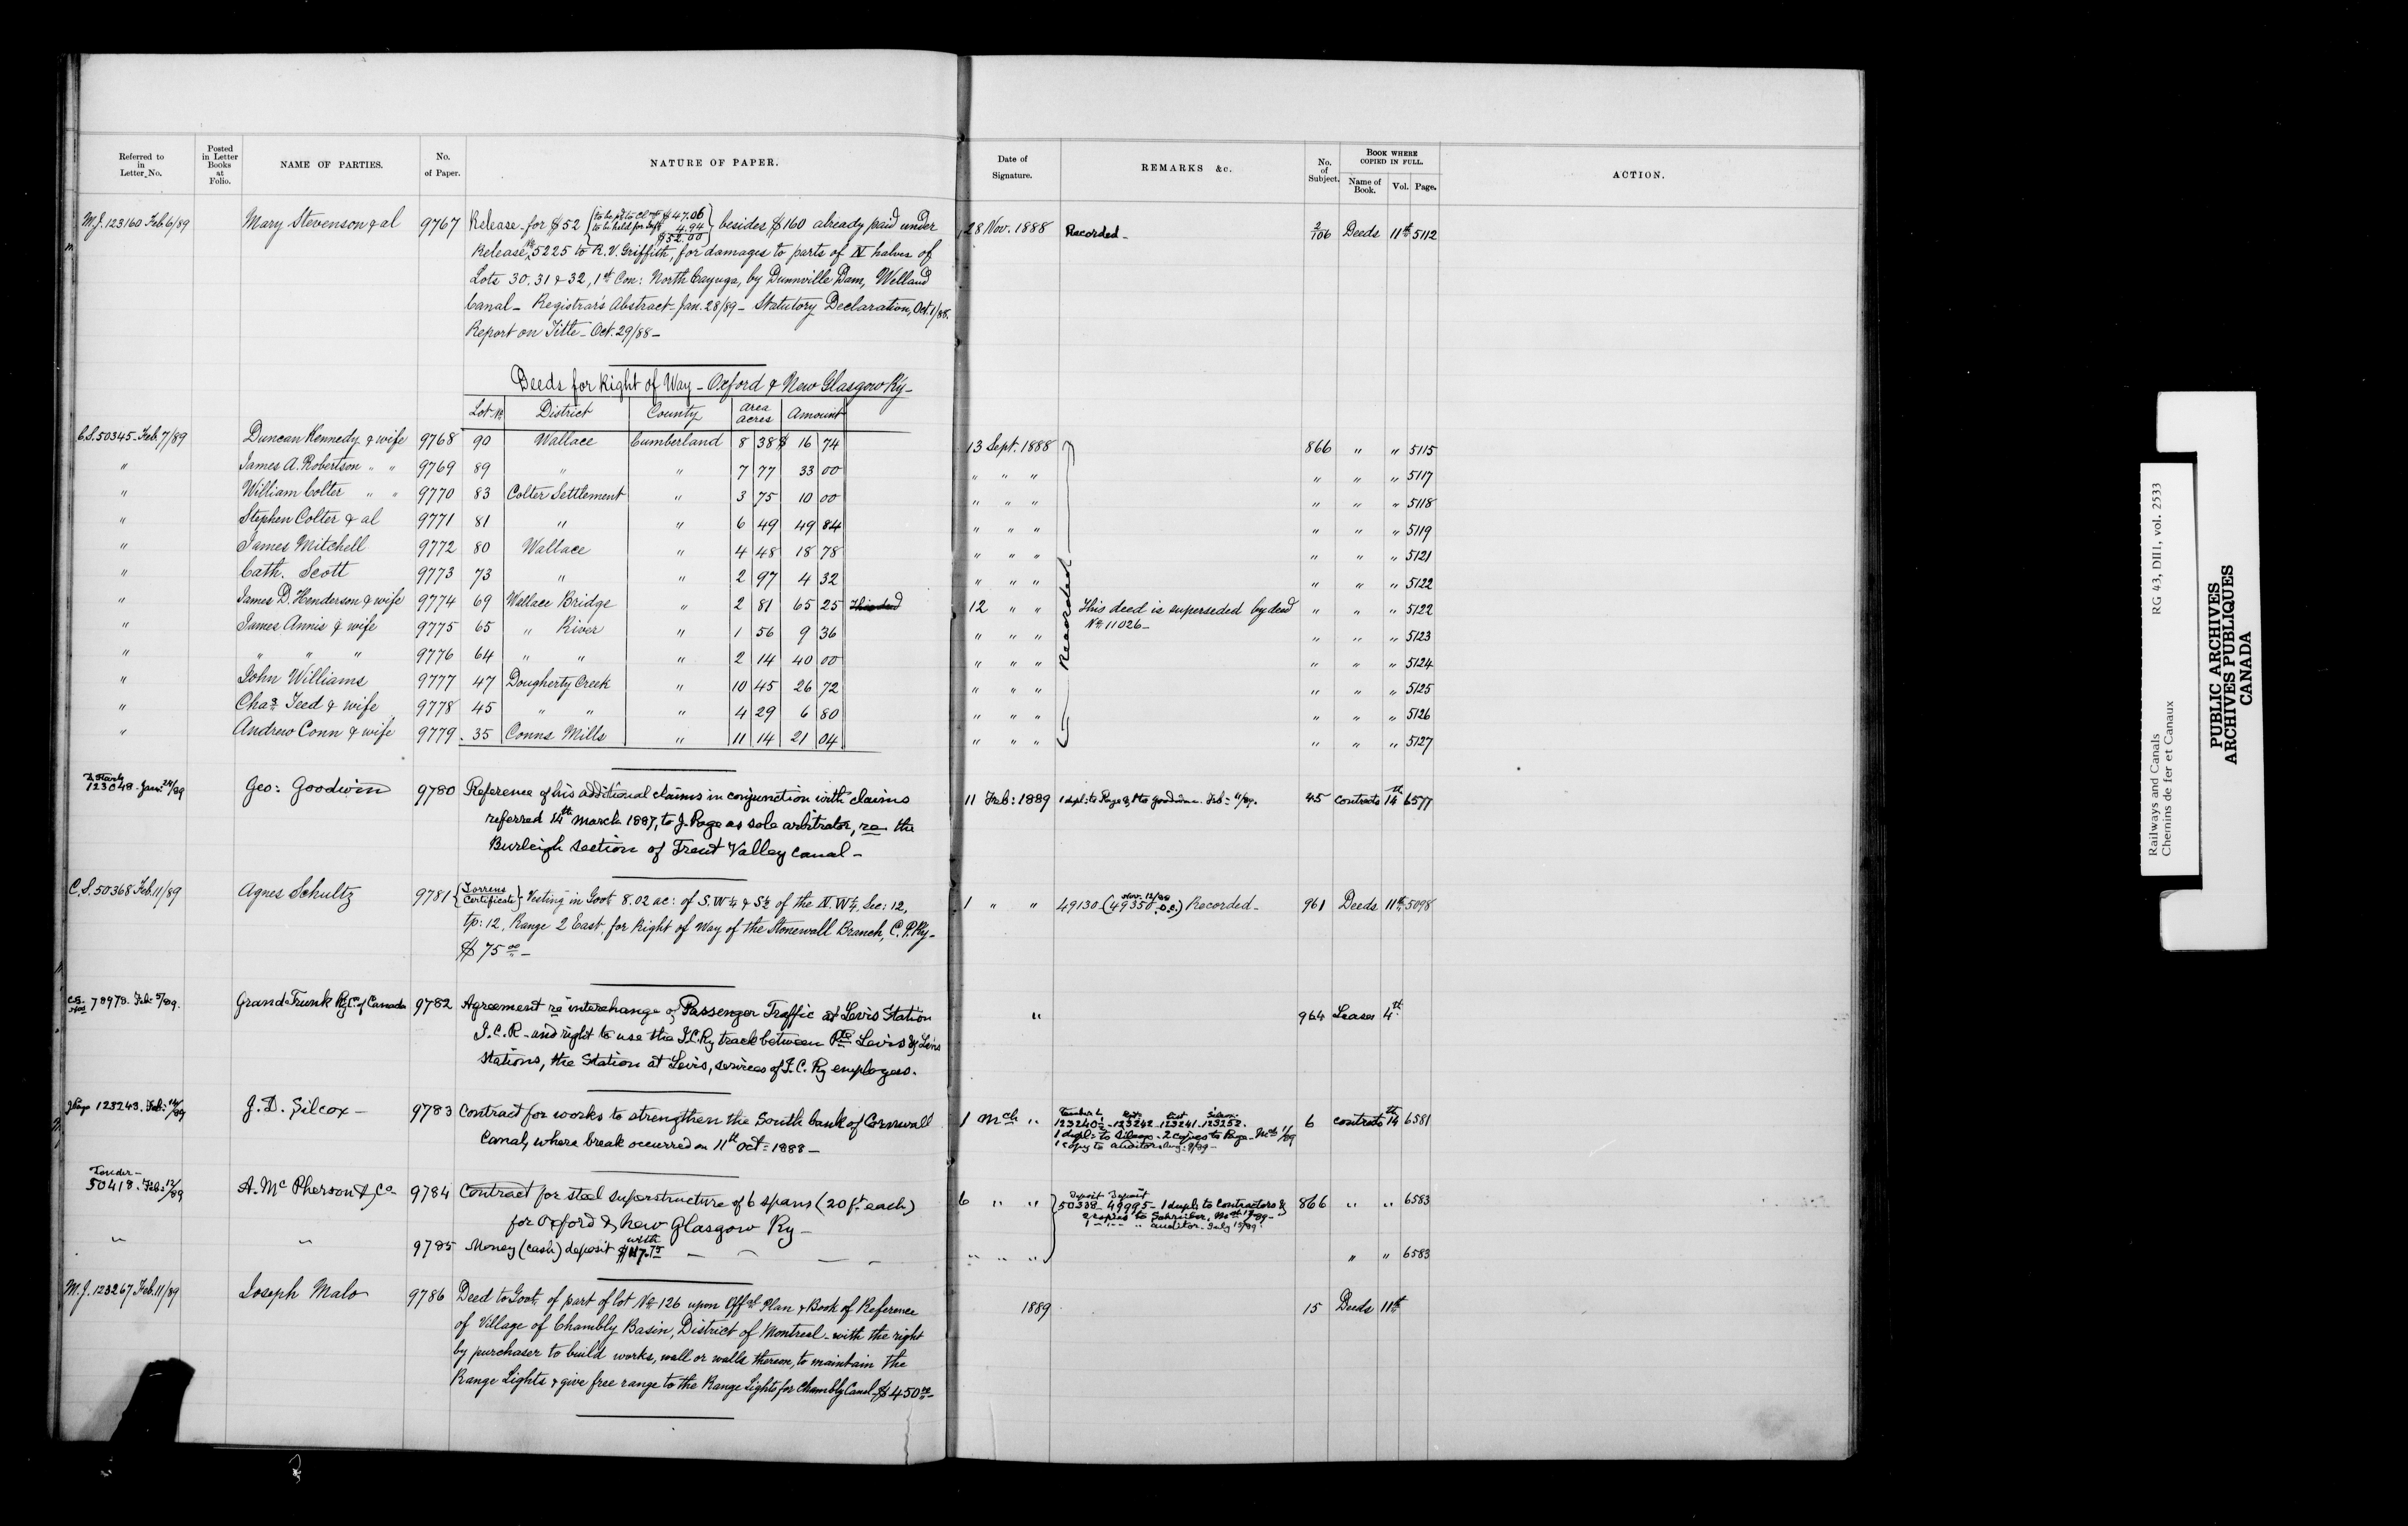 Referred to in Letter No.
Posted in Letter Books at Folio.
NAME OF PARTIES.
No. of Paper.
NATURE OF PAPER.
Date of Signature.
REMARKS &c.
No. of Subject.
BOOK WHERE COPIED IN FULL.
Name of Book. Vol. Page.
ACTION.
M.J. 123160 Feb. 6/89 Mary Stevenson & al 9767 Release for $52 {to be held for 4.94 $47.06 $52.00} besides $160 already paid under 28 Nov. 1888 Recorded 2/106 Deeds 11th 5112
Release No 5225 to R. V. Griffith, for damages to parts of N halves of
Lots 30, 31 & 32, 1st Con: North Cayuga, by Dunnville Dam, Welland
Canal - Registrar's Abstract - Jan. 28/89 - Statutory Declaration, Oct. 1/88.
Report on Title - Oct. 29/88 -
Deeds for Right of Way - Oxford & New Glasgow Ry -
Lot No District County Area acres Amount
C.S. 50345. Feb. 7/89 Duncan Kennedy & wife 9768 90 Wallace Cumberland 8 38 $ 16 74 13 Sept. 1888 866 " " 5115
" James A. Robertson " " 9769 89 " " 7 77 33 00 " " " " " " 5117
" William Colter " " 9770 83 Colter Settlement " 3 75 10 00 " " " " " " 5118
" Stephen Colter & al 9771 81 " " 6 49 49 84 " " " " " " 5119
" James Mitchell 9772 80 Wallace " 4 48 18 78 " " " " " " 5121
" Cath. Scott 9773 73 " " 2 97 4 32 " " " " " " 5122
" James D. Henderson & wife 9774 69 Wallace Bridge " 2 81 65 25 This deed 12 " " This deed is superseded by deed " " " 5122
No 11026 -
" James Annis & wife 9775 65 " River " 1 56 9 36 " " " " " " 5123
" " " " 9776 64 " " " 2 14 40 00 " " " " " " 5124
" John Williams 9777 47 Dougherty Creek " 10 45 26 72 " " " " " " 5125
" Chas Teed & wife 9778 45 " " " 4 29 6 80 " " " " " " 5126
" Andrew Conn & wife 9779 35 Conns Mills " 11 14 21 04 " " " " " " 5127
Recorded
123048 - Jan: 24/89 Geo: Goodwin 9780 Reference of his additional claims in conjunction with claims 11 Feb: 1889 1 dupl: to Page & 1 to Goodwin. Feb: 11/89. 45 Contracts 14th 6577
referred 14th March 1887, to J. Page as sole arbitrator, re the
Burleigh section of Trent Valley Canal -
C.S. 50368 Feb. 11/89 Agnes Schultz 9781 {Torrens Certificate} Vesting in Govt 8.02 ac: of S.W ¼ & S½ of the N.W¼, Sec: 12, 1 " " 49130 - (49350 Recorded - 961 Deeds 11th 5098
tp: 12, Range 2 East, for Right of Way of the Stonewall Branch, C. P. Ry -
$75.00 -
78978. Feb: 5/89. Grand Trunk Ry Co of Canada 9782 Agreement re interchange of Passenger Traffic at Levis Station " 964 Leases 4th
I. C. R - and right to use the I.C. Ry track between Pte Levis & Levis
Stations, the Station at Levis, services of I. C. Ry employees.
J Page 123243. Feb: 14/89 J. D. Silcox - 9783 Contract for works to strengthen the South bank of Cornwall 1 Mch " 123242 - 123241 - 123252. 6 Contracts 14th 6581
Canal, where break occurred on 11th Oct: 1888 - 1 dupl: to Silcox - 2 copies to Page - Mch 1/89
1 copy to Auditor Aug: 9/89 -
Tender - 50418. Feb: 12/89 A. McPherson & Co 9784 Contract for steel superstructure of 6 spans (20 ft each) 6 " " Deposit Deposit 50338 - 49995 - 1 dupl: to Contractors & 866 " " 6583
for Oxford & New Glasgow Ry - 2 copies to Schreiber, Mch 17/89 -
1 " " " Auditor - July 15/89.
" " 9785 Money (cash) deposit with " " " " " 6583
M.J. 123267 Feb. 11/89 Joseph Malo 9786 Deed to Govt. of part of lot No 126 upon Offal Plan & Book of Reference 1889 15 Deeds 11th
of Village of Chambly Basin, District of Montreal - with the right
by purchaser to build works, wall or walls thereon, to maintain the
Range Lights & give free range to the Range Lights for Chambly Canal - $450.00 -
Railways and Canals RG 43, DIII1, vol. 2533
Chemins de fer et Canaux
PUBLIC ARCHIVES
ARCHIVES PUBLIQUES
CANADA